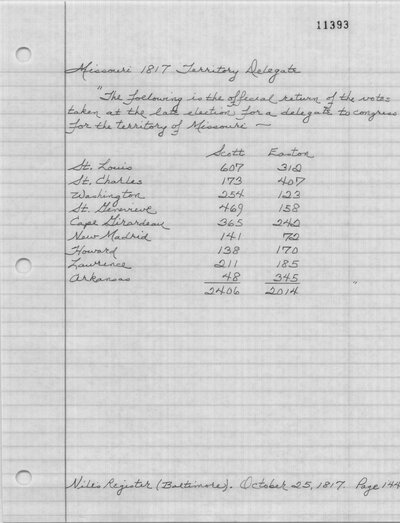 11393
Missouri 1817 Territory Delegate
"The following is the official return of the votes
taken at the late election for a delegate to congress
for the territory of Missouri —
Scott Easton
St. Louis 607 312
St. Charles 173 407
Washington 254 123
St. Genevieve 469 158
Cape Girardeau 365 242
New Madrid 141 72
Howard 138 170
Lawrence 211 185
Arkansas 48 345 "
2406 2014
Niles Register (Baltimore). October 25, 1817. Page 144